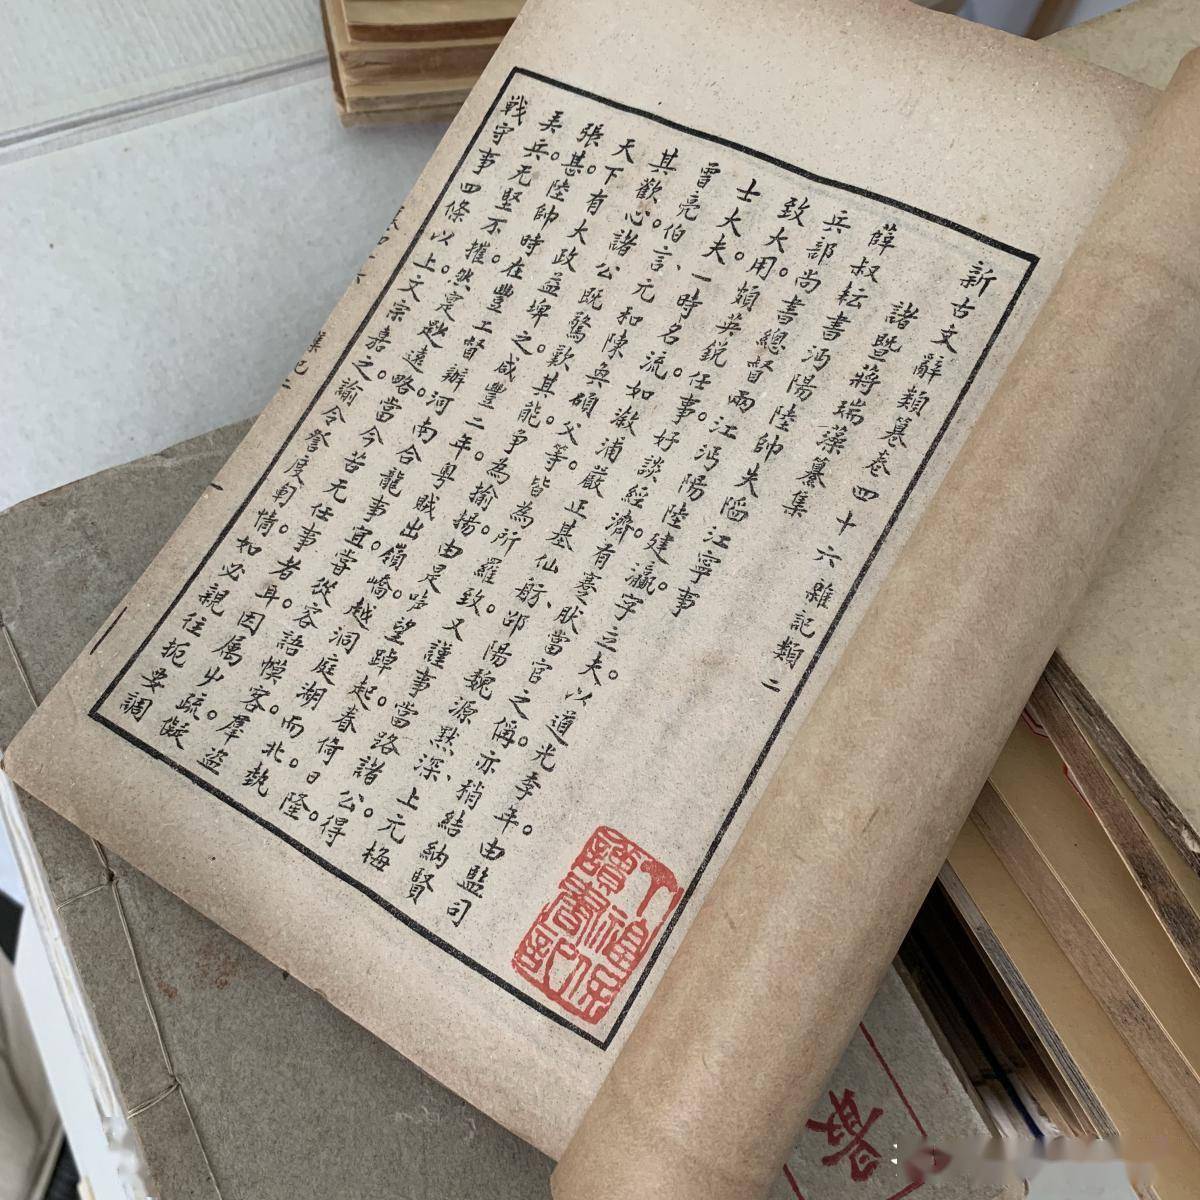 新古文辭類纂卷四十六雜記類二
諸暨蔣瑞藻纂集
薛叔耘書沔陽陸帥失陷江寧事
兵部尚書總督兩江沔陽陸建瀛字立夫。以道光季年。
致大用。頗英銳任事。好談經濟。有蹇朕當官之稱。亦稍結納賢
士大夫。一時名流如漵浦嚴正基仙舫、邵陽魏源默深、上元梅
曾亮伯言、元和陳奐碩父等。皆為所羅致。又謹事當路諸公。得
其歡心。諸公既驚歎其能。爭為揄揚。由是聲望踔起。春倚日隆。
天下有大政益埤之。咸豐二年粵賊出嶺嶠越洞庭湖而北。熱
張甚。陸帥時在豐工督辦河南合龍事宜。嘗從容語幙客。羣盜
美兵无堅不摧。然寔尟遠略。當今苦无任事者耳。因属屮疏。儗
戰守事四條以上。文宗嘉之。諭令詧度軔情。如必親往扼要調
丁福保讀書記